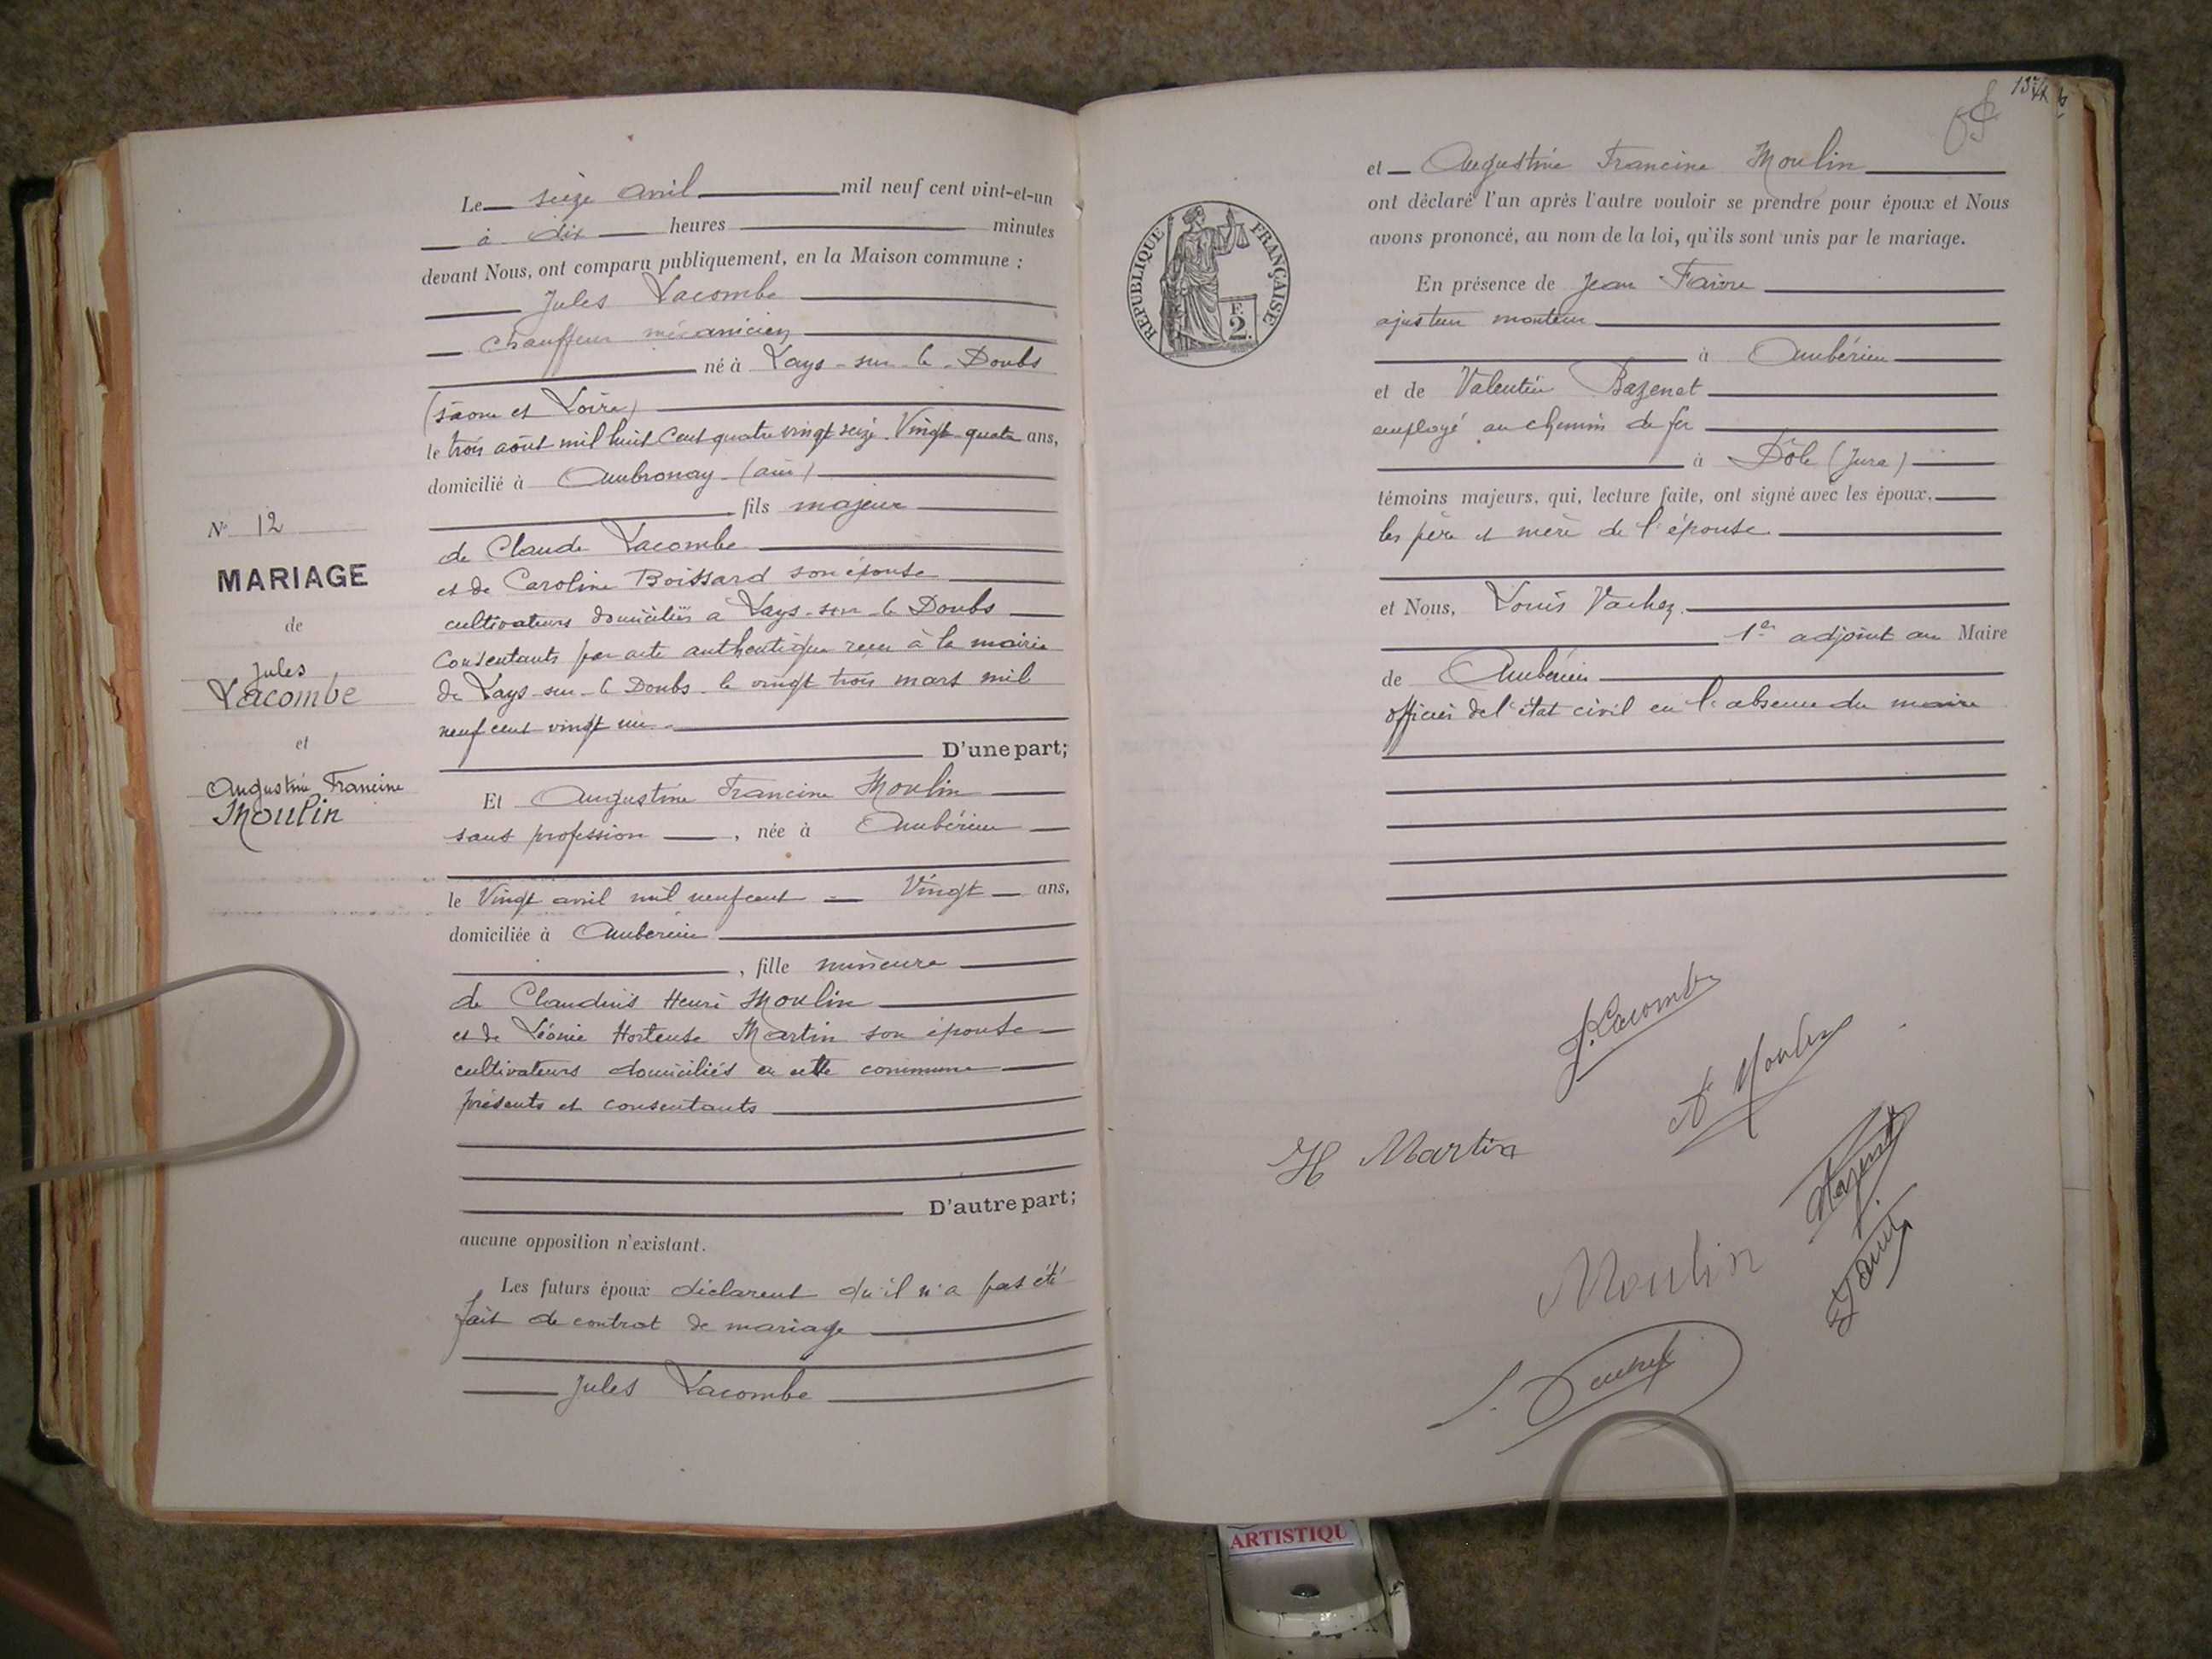 Le seize avril mil neuf cent vint-et-un
à dix heures minutes
devant Nous, ont comparu publiquement, en la Maison commune :
Jules Lacombe
chauffeur mécanicien
né à Lays-sur-le-Doubs
(Saone et Loire)
le trois août mil huit cent quatre vingt seize. Vingt-quatre ans,
domicilié à Ambronay (ain)
fils majeur
de Claude Lacombe
et de Caroline Boissard son épouse
cultivateurs domiciliés à Lays-sur-le Doubs
consentants par acte authentique reçu à la mairie
de Lays-sur-le Doubs le vingt trois mars mil
neuf cent vingt un.
D'une part;
Et Augustine Francine Moulin
sans profession, née à Ambérieu
le Vingt avril mil neuf cent Vingt ans,
domiciliée à Amberieu
, fille mineure
de Claudius Henri Moulin
et de Léonie Hortense Martin son épouse
cultivateurs domiciliés en cette commune
présents et consentants
D'autre part;
aucune opposition n'existant.
Les futurs époux déclarent qu'il n'a pas été
fait de contrat de mariage
Jules Lacombe
N° 12
MARIAGE
de
Jules
Lacombe
et
Augustine Francine
Moulin
et Augustine Francine Moulin
ont déclaré l'un après l'autre vouloir se prendre pour époux et Nous
avons prononcé, au nom de la loi, qu'ils sont unis par le mariage.
RÉPUBLIQUE FRANÇAISE
F.
2.
En présence de Jean Faivre
ajusteur monteur
à Ambérieu
et de Valentin Bazenet
employé au chemin de fer
à Dôle (Jura)
témoins majeurs, qui, lecture faite, ont signé avec les époux,
les père et mère de l'épouse
et Nous, Louis Vachez.
1er adjoint au Maire
de Ambérieu
officier de l'état civil en l'absence du maire
J. Lacombe
A Moulin
H Martin
Bazenet
Moulin
J. Faivre
ARTISTIQU